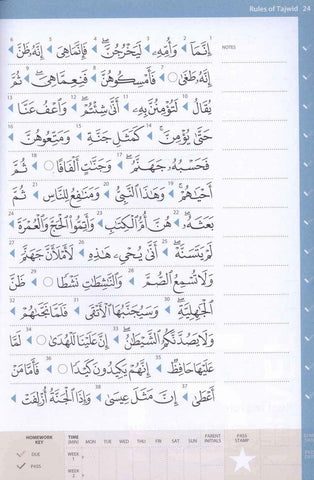 Rules of Tajwid 24
NOTES
إِنَّمَا وَأُمِّهِۦ لَيَخْرُجُنَّ ۖ فَإِنَّمَا هِىَ إِنَّهُۥ ظَنَّ
إِنَّهُۥ طَغَىٰ فَأَمْسِكُوهُنَّ فَنِعِمَّا هِىَ ۖ ثُمَّ
يُقَالُ لَتُؤْمِنُنَّ بِهِۦ أَنَّىٰ شِئْتُمْ ۖ وَٱعْفُ عَنَّا
حَتَّىٰ يُؤْمِنَّ ۚ كَمَثَلِ جَنَّةٍ وَمَتِّعُوهُنَّ
فَحَسْبُهُۥ جَهَنَّمُ ۚ وَجَنَّٰتٍ أَلْفَافًا ثُمَّ
أَحْيَٰهُمْ ۚ وَهَٰذَا ٱلنَّبِىُّ وَمَنَٰفِعُ لِلنَّاسِ ثُمَّ
بَعَثَهُۥ ۖ هُنَّ أُمُّ ٱلْكِتَٰبِ وَأَتِمُّوا۟ ٱلْحَجَّ وَٱلْعُمْرَةَ
لَمْ يَتَسَنَّهْ ۖ أَنَّىٰ يُحْىِۦ هَٰذِهِ لَأَمْلَأَنَّ جَهَنَّمَ
وَلَا تُسْمِعُ ٱلصُّمَّ وَٱلنَّٰشِطَٰتِ نَشْطًا ظَنَّ
ٱلْجَٰهِلِيَّةِ ۖ وَسَيُجَنَّبُهَا ٱلْأَتْقَى فَلَمَّا نَجَّىٰهُمْ
وَلَا يَصُدَّنَّكُمُ ٱلشَّيْطَٰنُ ۖ إِنَّ عَلَيْنَا لَلْهُدَىٰ لَمَّا
عَلَيْهَا حَافِظٌ إِنَّهُمْ يَكِيدُونَ كَيْدًا فَأَمَّا مَنْ
أَعْطَىٰ إِنَّ مَثَلَ عِيسَىٰ وَإِذَا ٱلْجَنَّةُ أُزْلِفَتْ
HOMEWORK KEY TIME (MIN) MON TUE WED THU FRI SAT SUN PARENT INITIALS PASS STAMP
DUE WEEK 1
PASS WEEK 2